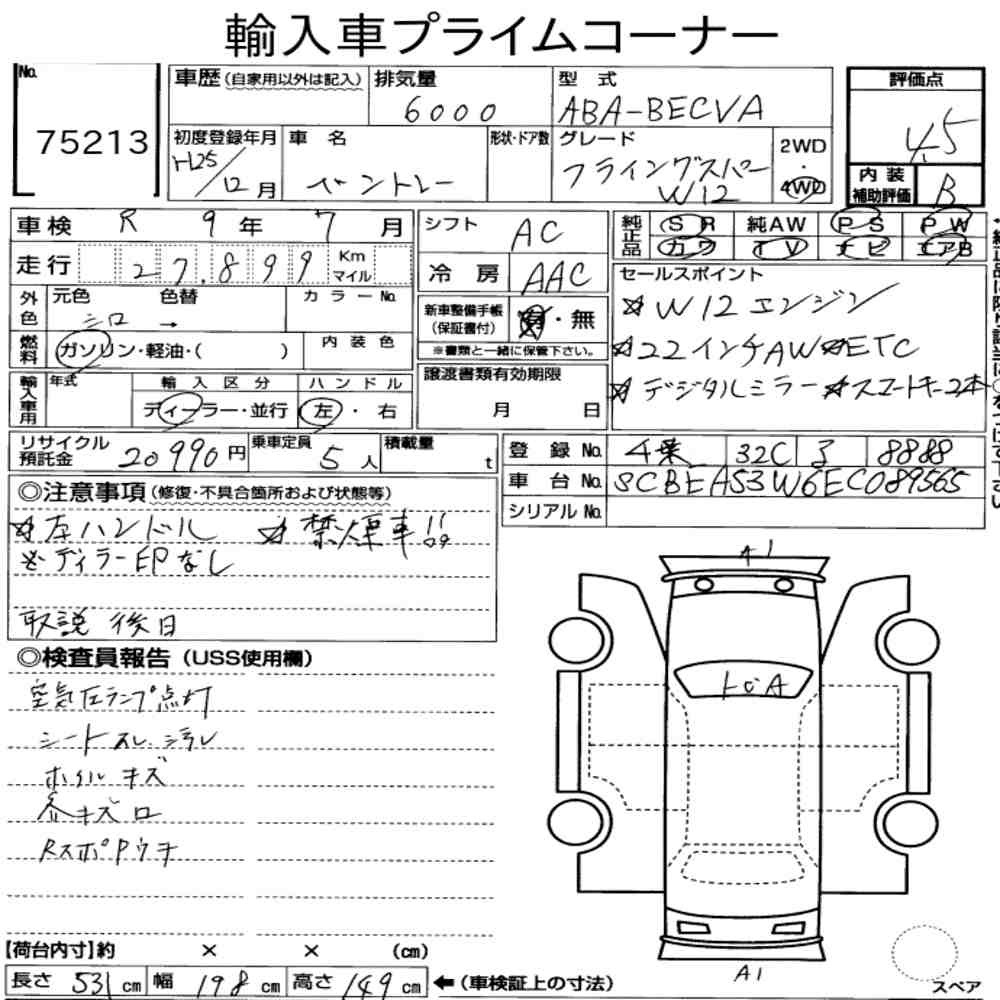 輸入車プライムコーナー
No. 75213
車歴（自家用以外は記入）
排気量 6000
型式 ABA-BECVA
評価点 4.5
初度登録年月 H25/12月
車名 ベントレー
形状・ドア数
グレード フライングスパー W12
2WD・4WD
内装補助評価 B
車検 R 9年 7月
シフト AC
純正品 SR 純AW PS PW
カワ TV ナビ エアB
走行 27,899 Km マイル
冷房 AAC
セールスポイント
☆W12エンジン
☆22インチAW ☆ETC
☆デジタルミラー ☆スマートキー2本
外色 元色 シロ → 色替 カラーNo.
新車整備手帳（保証書付） 有・無
※書類と一緒に保管下さい。
燃料 ガソリン・軽油・（ ） 内装色
輸入車用 年式 輸入区分 ハンドル
ディーラー・並行 左・右
譲渡書類有効期限
月 日
リサイクル預託金 20990円 乗車定員 5人 積載量 t
登録No. 32C 8888
車台No. SCBEA53W6EC089565
シリアルNo.
◎注意事項（修復・不具合箇所および状態等）
☆左ハンドル ☆禁煙車!!
※ディラー印なし
取説 後日
◎検査員報告（USS使用欄）
空気圧ランプ点灯
シートスレ、シミ
ホイルキズ
Rスポ
A1
A
A1
【荷台内寸】約 × × （cm）
長さ 531cm 幅 198cm 高さ 149cm ←（車検証上の寸法）
スペア